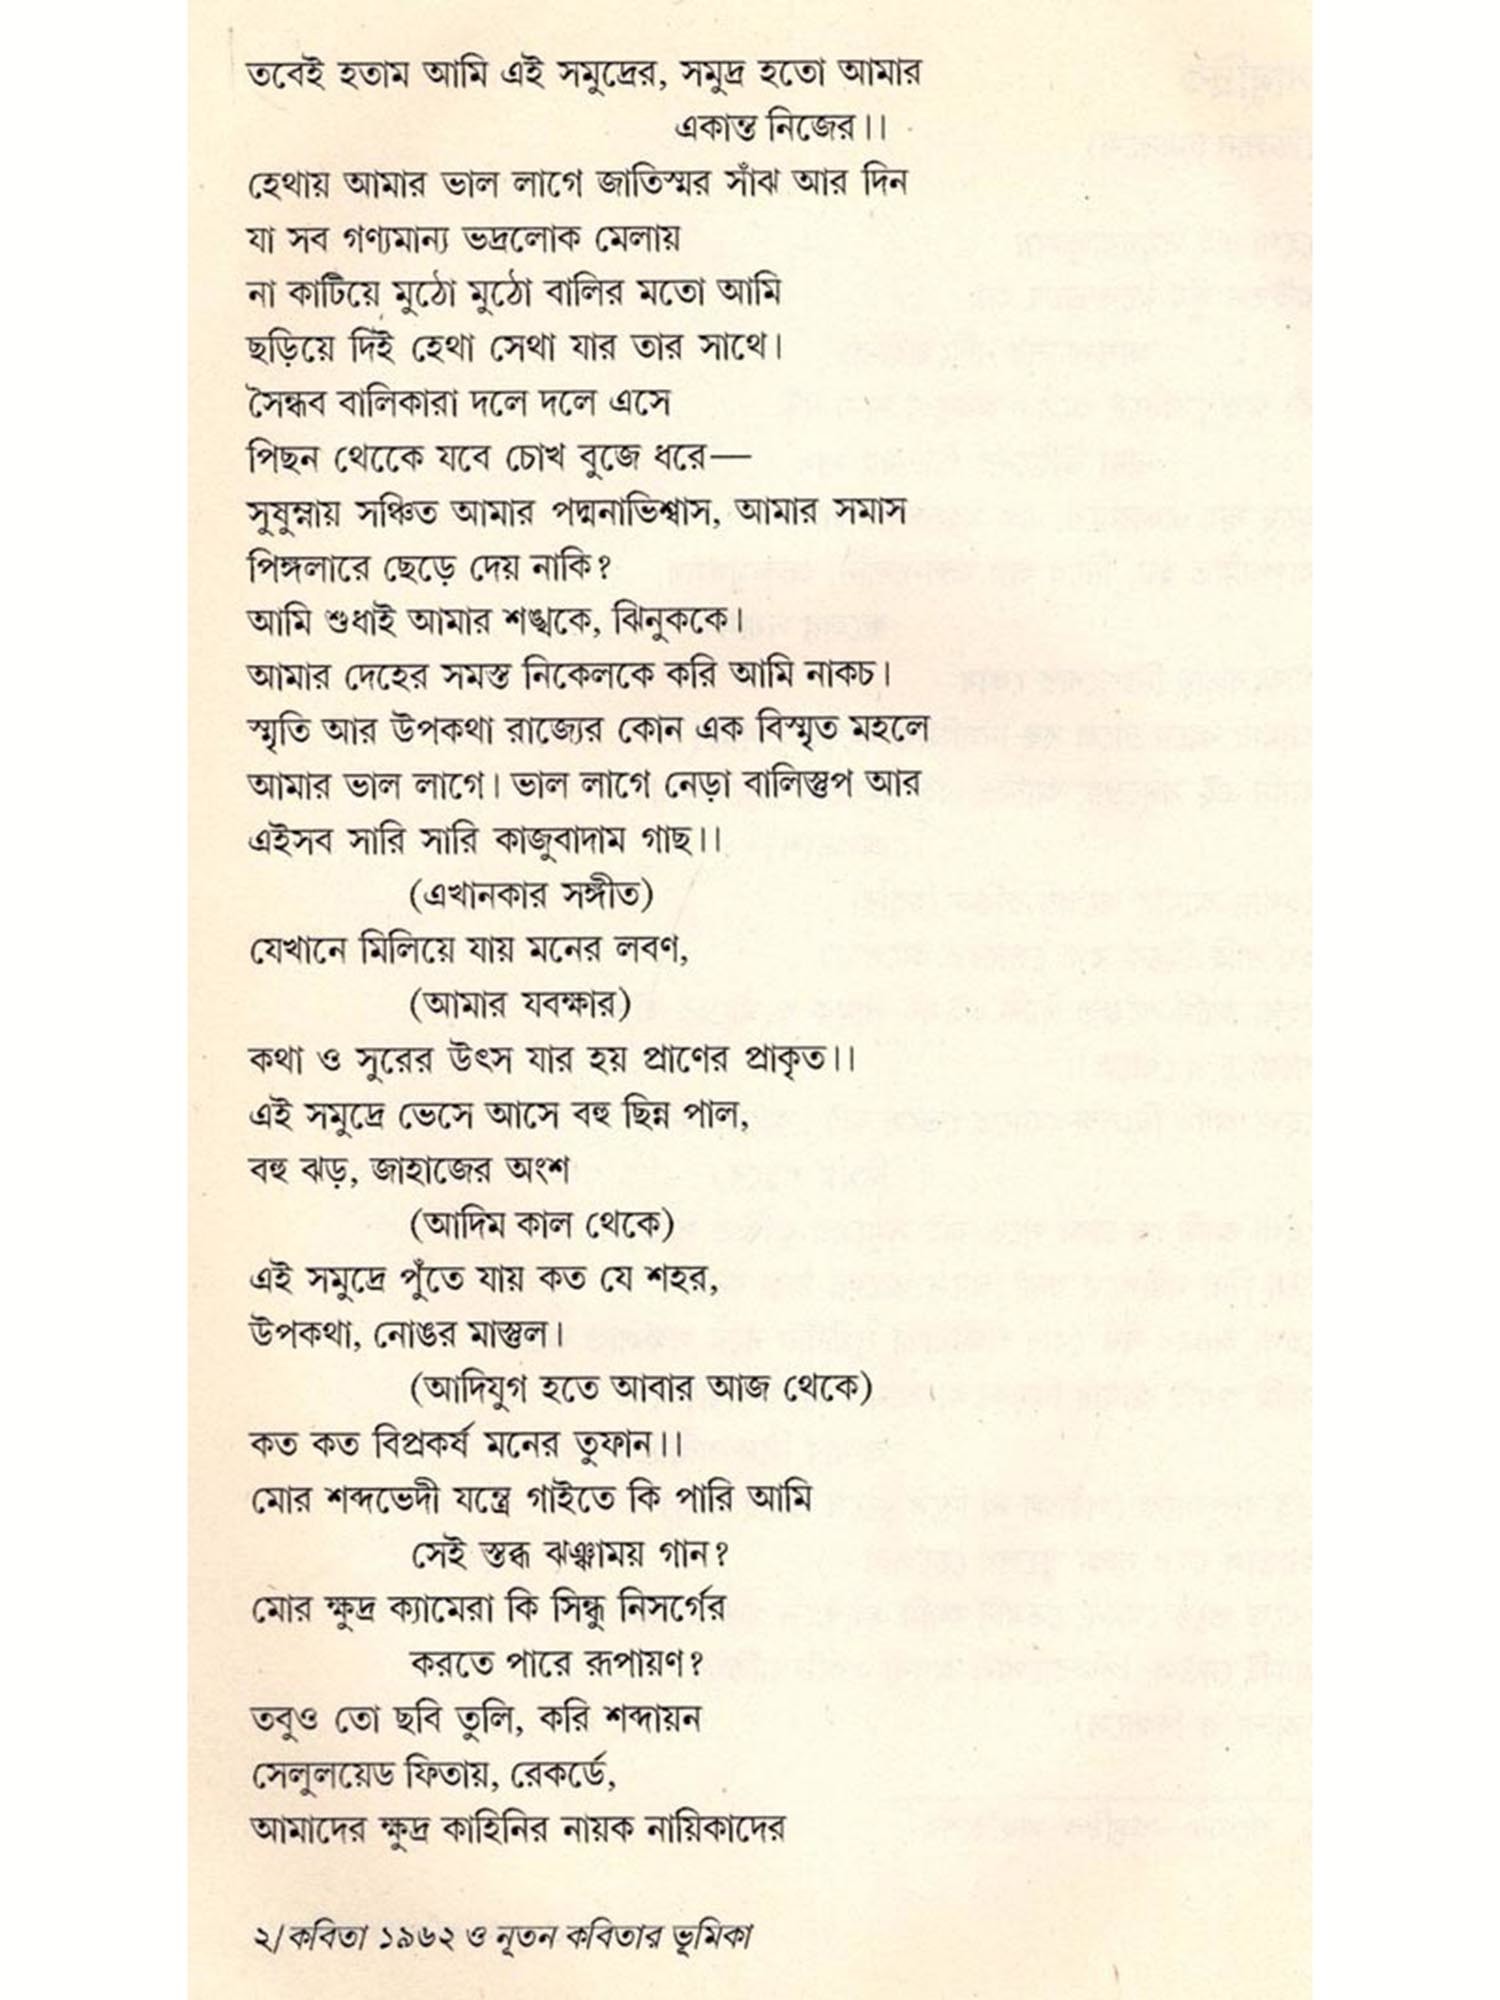 তবেই হতাম আমি এই সমুদ্রের, সমুদ্র হতো আমার
একান্ত নিজের।।
হেথায় আমার ভাল লাগে জাতিস্মর সাঁঝ আর দিন
যা সব গণ্যমান্য ভদ্রলোক মেলায়
না কাটিয়ে মুঠো মুঠো বালির মতো আমি
ছড়িয়ে দিই হেথা সেথা যার তার সাথে।
সৈন্ধব বালিকারা দলে দলে এসে
পিছন থেকে যবে চোখ বুজে ধরে—
সুষুম্নায় সঞ্চিত আমার পদ্মনাভিশ্বাস, আমার সমাস
পিঙ্গলারে ছেড়ে দেয় নাকি?
আমি শুধাই আমার শঙ্খকে, ঝিনুককে।
আমার দেহের সমস্ত নিকেলকে করি আমি নাকচ।
স্মৃতি আর উপকথা রাজ্যের কোন এক বিস্মৃত মহলে
আমার ভাল লাগে। ভাল লাগে নেড়া বালিস্তুপ আর
এইসব সারি সারি কাজুবাদাম গাছ।।
(এখানকার সঙ্গীত)
যেখানে মিলিয়ে যায় মনের লবণ,
(আমার যবক্ষার)
কথা ও সুরের উৎস যার হয় প্রাণের প্রাকৃত।।
এই সমুদ্রে ভেসে আসে বহু ছিন্ন পাল,
বহু ঝড়, জাহাজের অংশ
(আদিম কাল থেকে)
এই সমুদ্রে পুঁতে যায় কত যে শহর,
উপকথা, নোঙর মাস্তুল।
(আদিযুগ হতে আবার আজ থেকে)
কত কত বিপ্রকর্ষ মনের তুফান।।
মোর শব্দভেদী যন্ত্রে গাইতে কি পারি আমি
সেই স্তব্ধ ঝঞ্ঝাময় গান?
মোর ক্ষুদ্র ক্যামেরা কি সিন্ধু নিসর্গের
করতে পারে রূপায়ণ?
তবুও তো ছবি তুলি, করি শব্দায়ন
সেলুলয়েড ফিতায়, রেকর্ডে,
আমাদের ক্ষুদ্র কাহিনির নায়ক নায়িকাদের
২/কবিতা ১৯৬২ ও নূতন কবিতার ভূমিকা